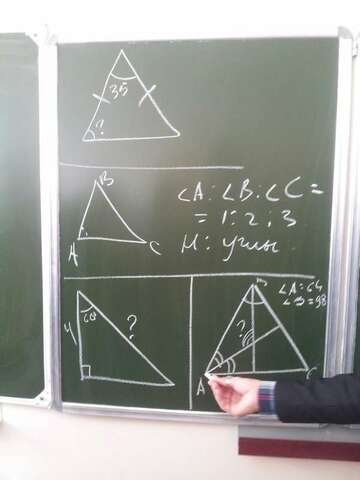 35
?
B
A
C
∠A:∠B:∠C=
=1:2:3
Н: углы
4
60
?
B
∠A=64
∠B=98
?
A
C